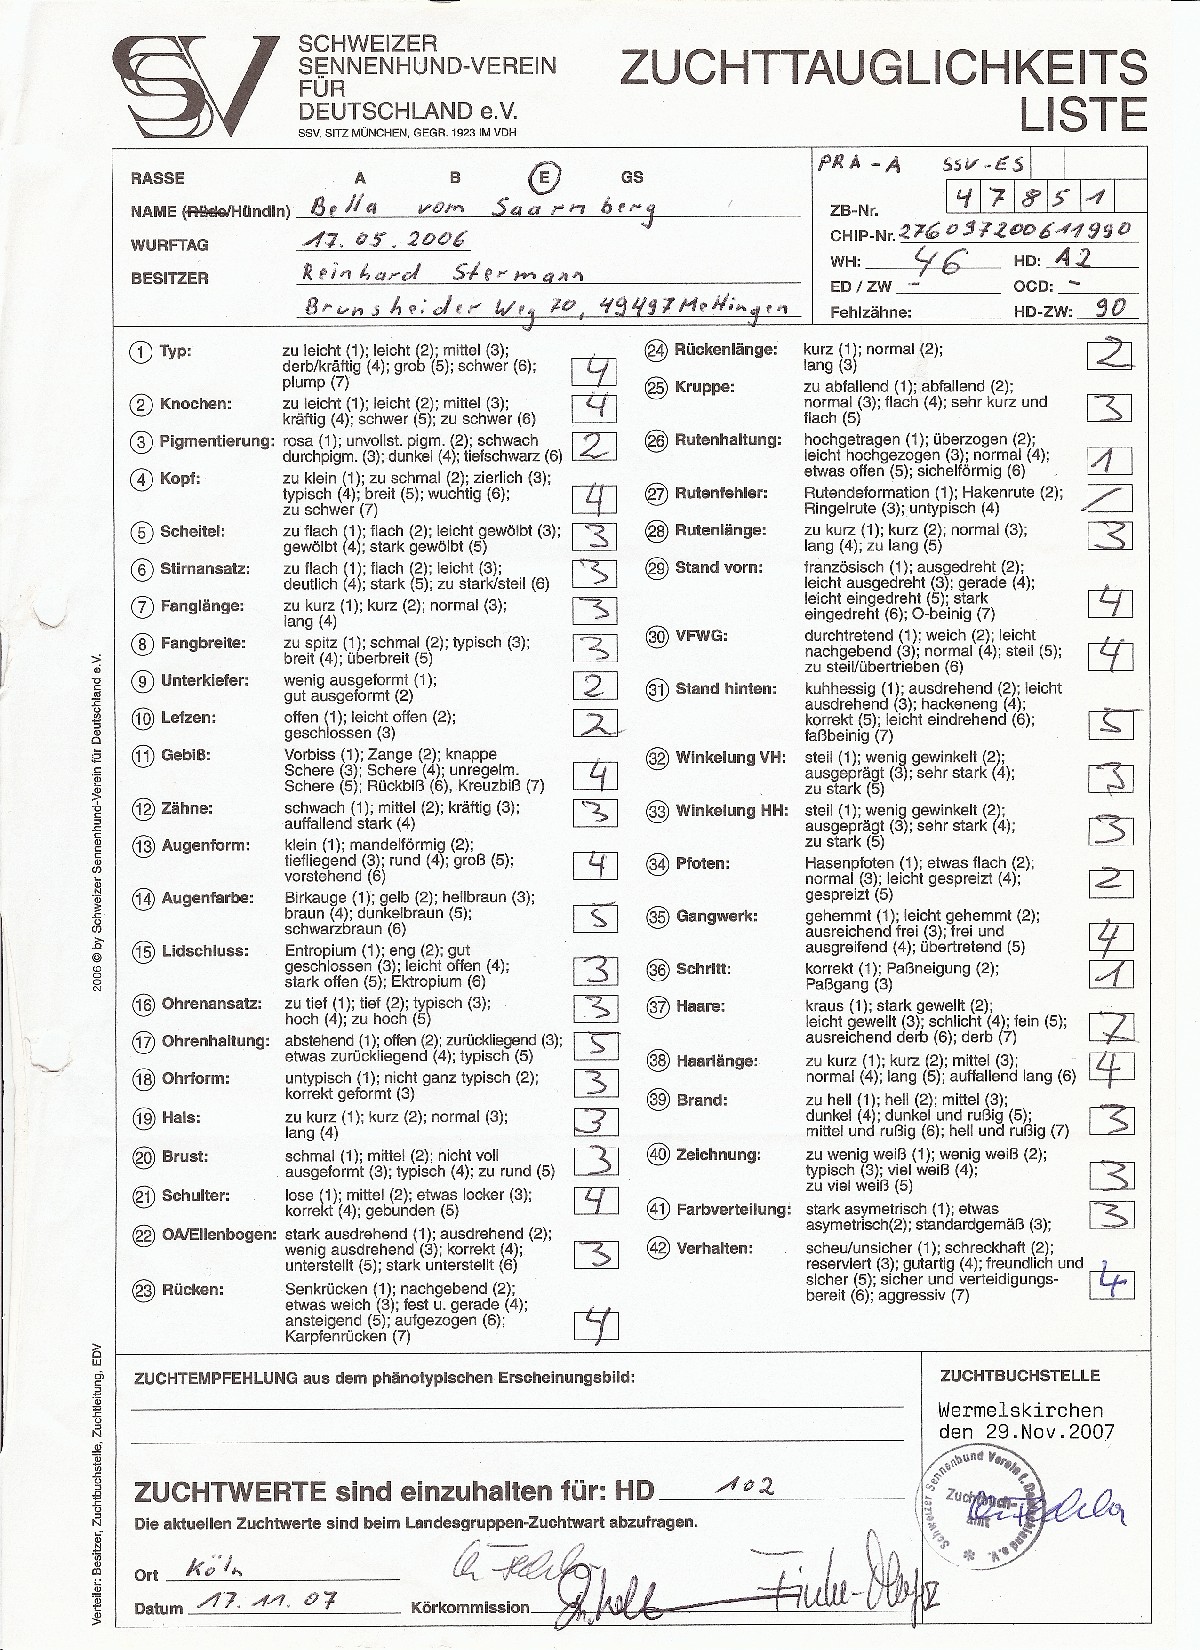 SCHWEIZER
SENNENHUND-VEREIN
FÜR
DEUTSCHLAND e.V.
SSV. SITZ MÜNCHEN, GEGR. 1923 IM VDH
ZUCHTTAUGLICHKEITS
LISTE
RASSE A B E GS
NAME (Rüde/Hündin) Bella vom Saarnberg
WURFTAG 17.05.2006
BESITZER Reinhard Stermann
Brunsheider Weg 70, 49497 Mettingen
PRA-A SSV-ES
ZB-Nr. 47851
CHIP-Nr. 276097200611990
WH: 46 HD: A2
ED / ZW - OCD: -
Fehlzähne: HD-ZW: 90
1 Typ: zu leicht (1); leicht (2); mittel (3);
derb/kräftig (4); grob (5); schwer (6);
plump (7) 4
2 Knochen: zu leicht (1); leicht (2); mittel (3);
kräftig (4); schwer (5); zu schwer (6) 4
3 Pigmentierung: rosa (1); unvollst. pigm. (2); schwach
durchpigm. (3); dunkel (4); tiefschwarz (6) 2
4 Kopf: zu klein (1); zu schmal (2); zierlich (3);
typisch (4); breit (5); wuchtig (6);
zu schwer (7) 4
5 Scheitel: zu flach (1); flach (2); leicht gewölbt (3);
gewölbt (4); stark gewölbt (5) 3
6 Stirnansatz: zu flach (1); flach (2); leicht (3);
deutlich (4); stark (5); zu stark/steil (6) 3
7 Fanglänge: zu kurz (1); kurz (2); normal (3);
lang (4) 3
8 Fangbreite: zu spitz (1); schmal (2); typisch (3);
breit (4); überbreit (5) 3
9 Unterkiefer: wenig ausgeformt (1);
gut ausgeformt (2) 2
10 Lefzen: offen (1); leicht offen (2);
geschlossen (3) 2
11 Gebiß: Vorbiss (1); Zange (2); knappe
Schere (3); Schere (4); unregelm.
Schere (5); Rückbiß (6), Kreuzbiß (7) 4
12 Zähne: schwach (1); mittel (2); kräftig (3);
auffallend stark (4) 3
13 Augenform: klein (1); mandelförmig (2);
tiefliegend (3); rund (4); groß (5);
vorstehend (6) 4
14 Augenfarbe: Birkauge (1); gelb (2); hellbraun (3);
braun (4); dunkelbraun (5);
schwarzbraun (6) 5
15 Lidschluss: Entropium (1); eng (2); gut
geschlossen (3); leicht offen (4);
stark offen (5); Ektropium (6) 3
16 Ohrenansatz: zu tief (1); tief (2); typisch (3);
hoch (4); zu hoch (5) 3
17 Ohrenhaltung: abstehend (1); offen (2); zurückliegend (3);
etwas zurückliegend (4); typisch (5) 5
18 Ohrform: untypisch (1); nicht ganz typisch (2);
korrekt geformt (3) 3
19 Hals: zu kurz (1); kurz (2); normal (3);
lang (4) 3
20 Brust: schmal (1); mittel (2); nicht voll
ausgeformt (3); typisch (4); zu rund (5) 3
21 Schulter: lose (1); mittel (2); etwas locker (3);
korrekt (4); gebunden (5) 4
22 OA/Ellenbogen: stark ausdrehend (1); ausdrehend (2);
wenig ausdrehend (3); korrekt (4);
unterstellt (5); stark unterstellt (6) 3
23 Rücken: Senkrücken (1); nachgebend (2);
etwas weich (3); fest u. gerade (4);
ansteigend (5); aufgezogen (6);
Karpfenrücken (7) 4
24 Rückenlänge: kurz (1); normal (2);
lang (3) 2
25 Kruppe: zu abfallend (1); abfallend (2);
normal (3); flach (4); sehr kurz und
flach (5) 3
26 Rutenhaltung: hochgetragen (1); überzogen (2);
leicht hochgezogen (3); normal (4);
etwas offen (5); sichelförmig (6) 1
27 Rutenfehler: Rutendeformation (1); Hakenrute (2);
Ringelrute (3); untypisch (4) /
28 Rutenlänge: zu kurz (1); kurz (2); normal (3);
lang (4); zu lang (5) 3
29 Stand vorn: französisch (1); ausgedreht (2);
leicht ausgedreht (3); gerade (4);
leicht eingedreht (5); stark
eingedreht (6); O-beinig (7) 4
30 VFWG: durchtretend (1); weich (2); leicht
nachgebend (3); normal (4); steil (5);
zu steil/übertrieben (6) 4
31 Stand hinten: kuhhessig (1); ausdrehend (2); leicht
ausdrehend (3); hackeneng (4);
korrekt (5); leicht eindrehend (6);
faßbeinig (7) 5
32 Winkelung VH: steil (1); wenig gewinkelt (2);
ausgeprägt (3); sehr stark (4);
zu stark (5) 3
33 Winkelung HH: steil (1); wenig gewinkelt (2);
ausgeprägt (3); sehr stark (4);
zu stark (5) 3
34 Pfoten: Hasenpfoten (1); etwas flach (2);
normal (3); leicht gespreizt (4);
gespreizt (5) 2
35 Gangwerk: gehemmt (1); leicht gehemmt (2);
ausreichend frei (3); frei und
ausgreifend (4); übertretend (5) 4
36 Schritt: korrekt (1); Paßneigung (2);
Paßgang (3) 1
37 Haare: kraus (1); stark gewellt (2);
leicht gewellt (3); schlicht (4); fein (5);
ausreichend derb (6); derb (7) 7
38 Haarlänge: zu kurz (1); kurz (2); mittel (3);
normal (4); lang (5); auffallend lang (6) 4
39 Brand: zu hell (1); hell (2); mittel (3);
dunkel (4); dunkel und rußig (5);
mittel und rußig (6); hell und rußig (7) 3
40 Zeichnung: zu wenig weiß (1); wenig weiß (2);
typisch (3); viel weiß (4);
zu viel weiß (5) 3
41 Farbverteilung: stark asymetrisch (1); etwas
asymetrisch(2); standardgemäß (3); 3
42 Verhalten: scheu/unsicher (1); schreckhaft (2);
reserviert (3); gutartig (4); freundlich und
sicher (5); sicher und verteidigungs-
bereit (6); aggressiv (7) 4
2006 © by Schweizer Sennenhund-Verein für Deutschland e.V.
Verteiler: Besitzer, Zuchtbuchstelle, Zuchtleitung, EDV
ZUCHTEMPFEHLUNG aus dem phänotypischen Erscheinungsbild:
ZUCHTWERTE sind einzuhalten für: HD 102
Die aktuellen Zuchtwerte sind beim Landesgruppen-Zuchtwart abzufragen.
Ort Köln
Datum 17.11.07 Körkommission
ZUCHTBUCHSTELLE
Wermelskirchen
den 29.Nov.2007
Schweizer Sennenhund Verein f. Deutschland e.V.
Zuchtbuch-
amt